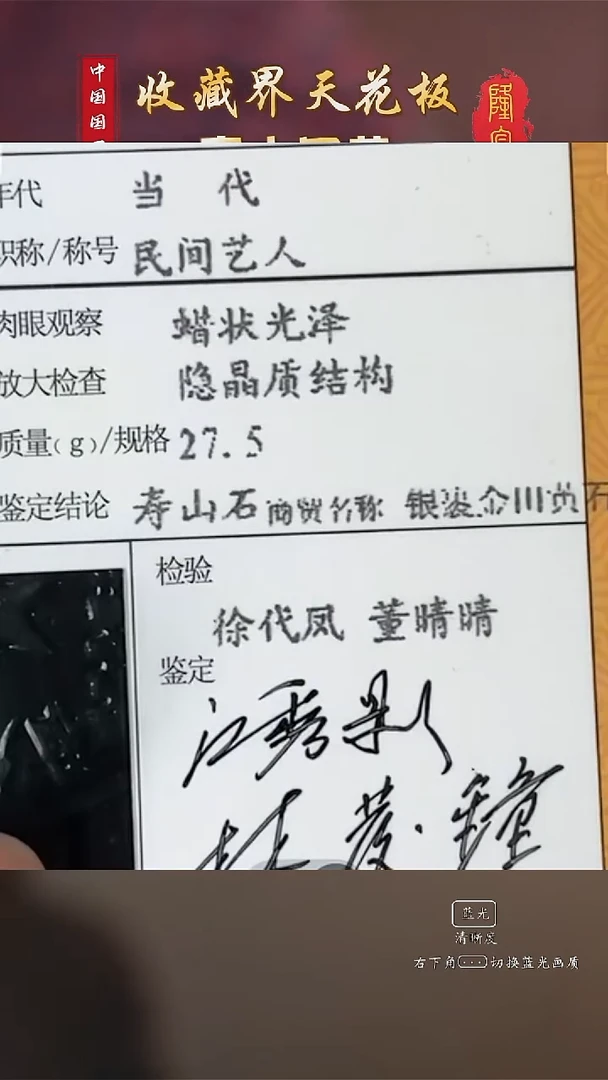 中国国
收藏界天花板
年代 当 代
职称/称号 民间艺人
肉眼观察 蜡状光泽
放大检查 隐晶质结构
质量(g)/规格 27.5
鉴定结论 寿山石 商贸名称 银裹金川黄石
检验
徐代凤 董晴晴
鉴定
江秀影
蓝光
清晰度
右下角 切换蓝光画质